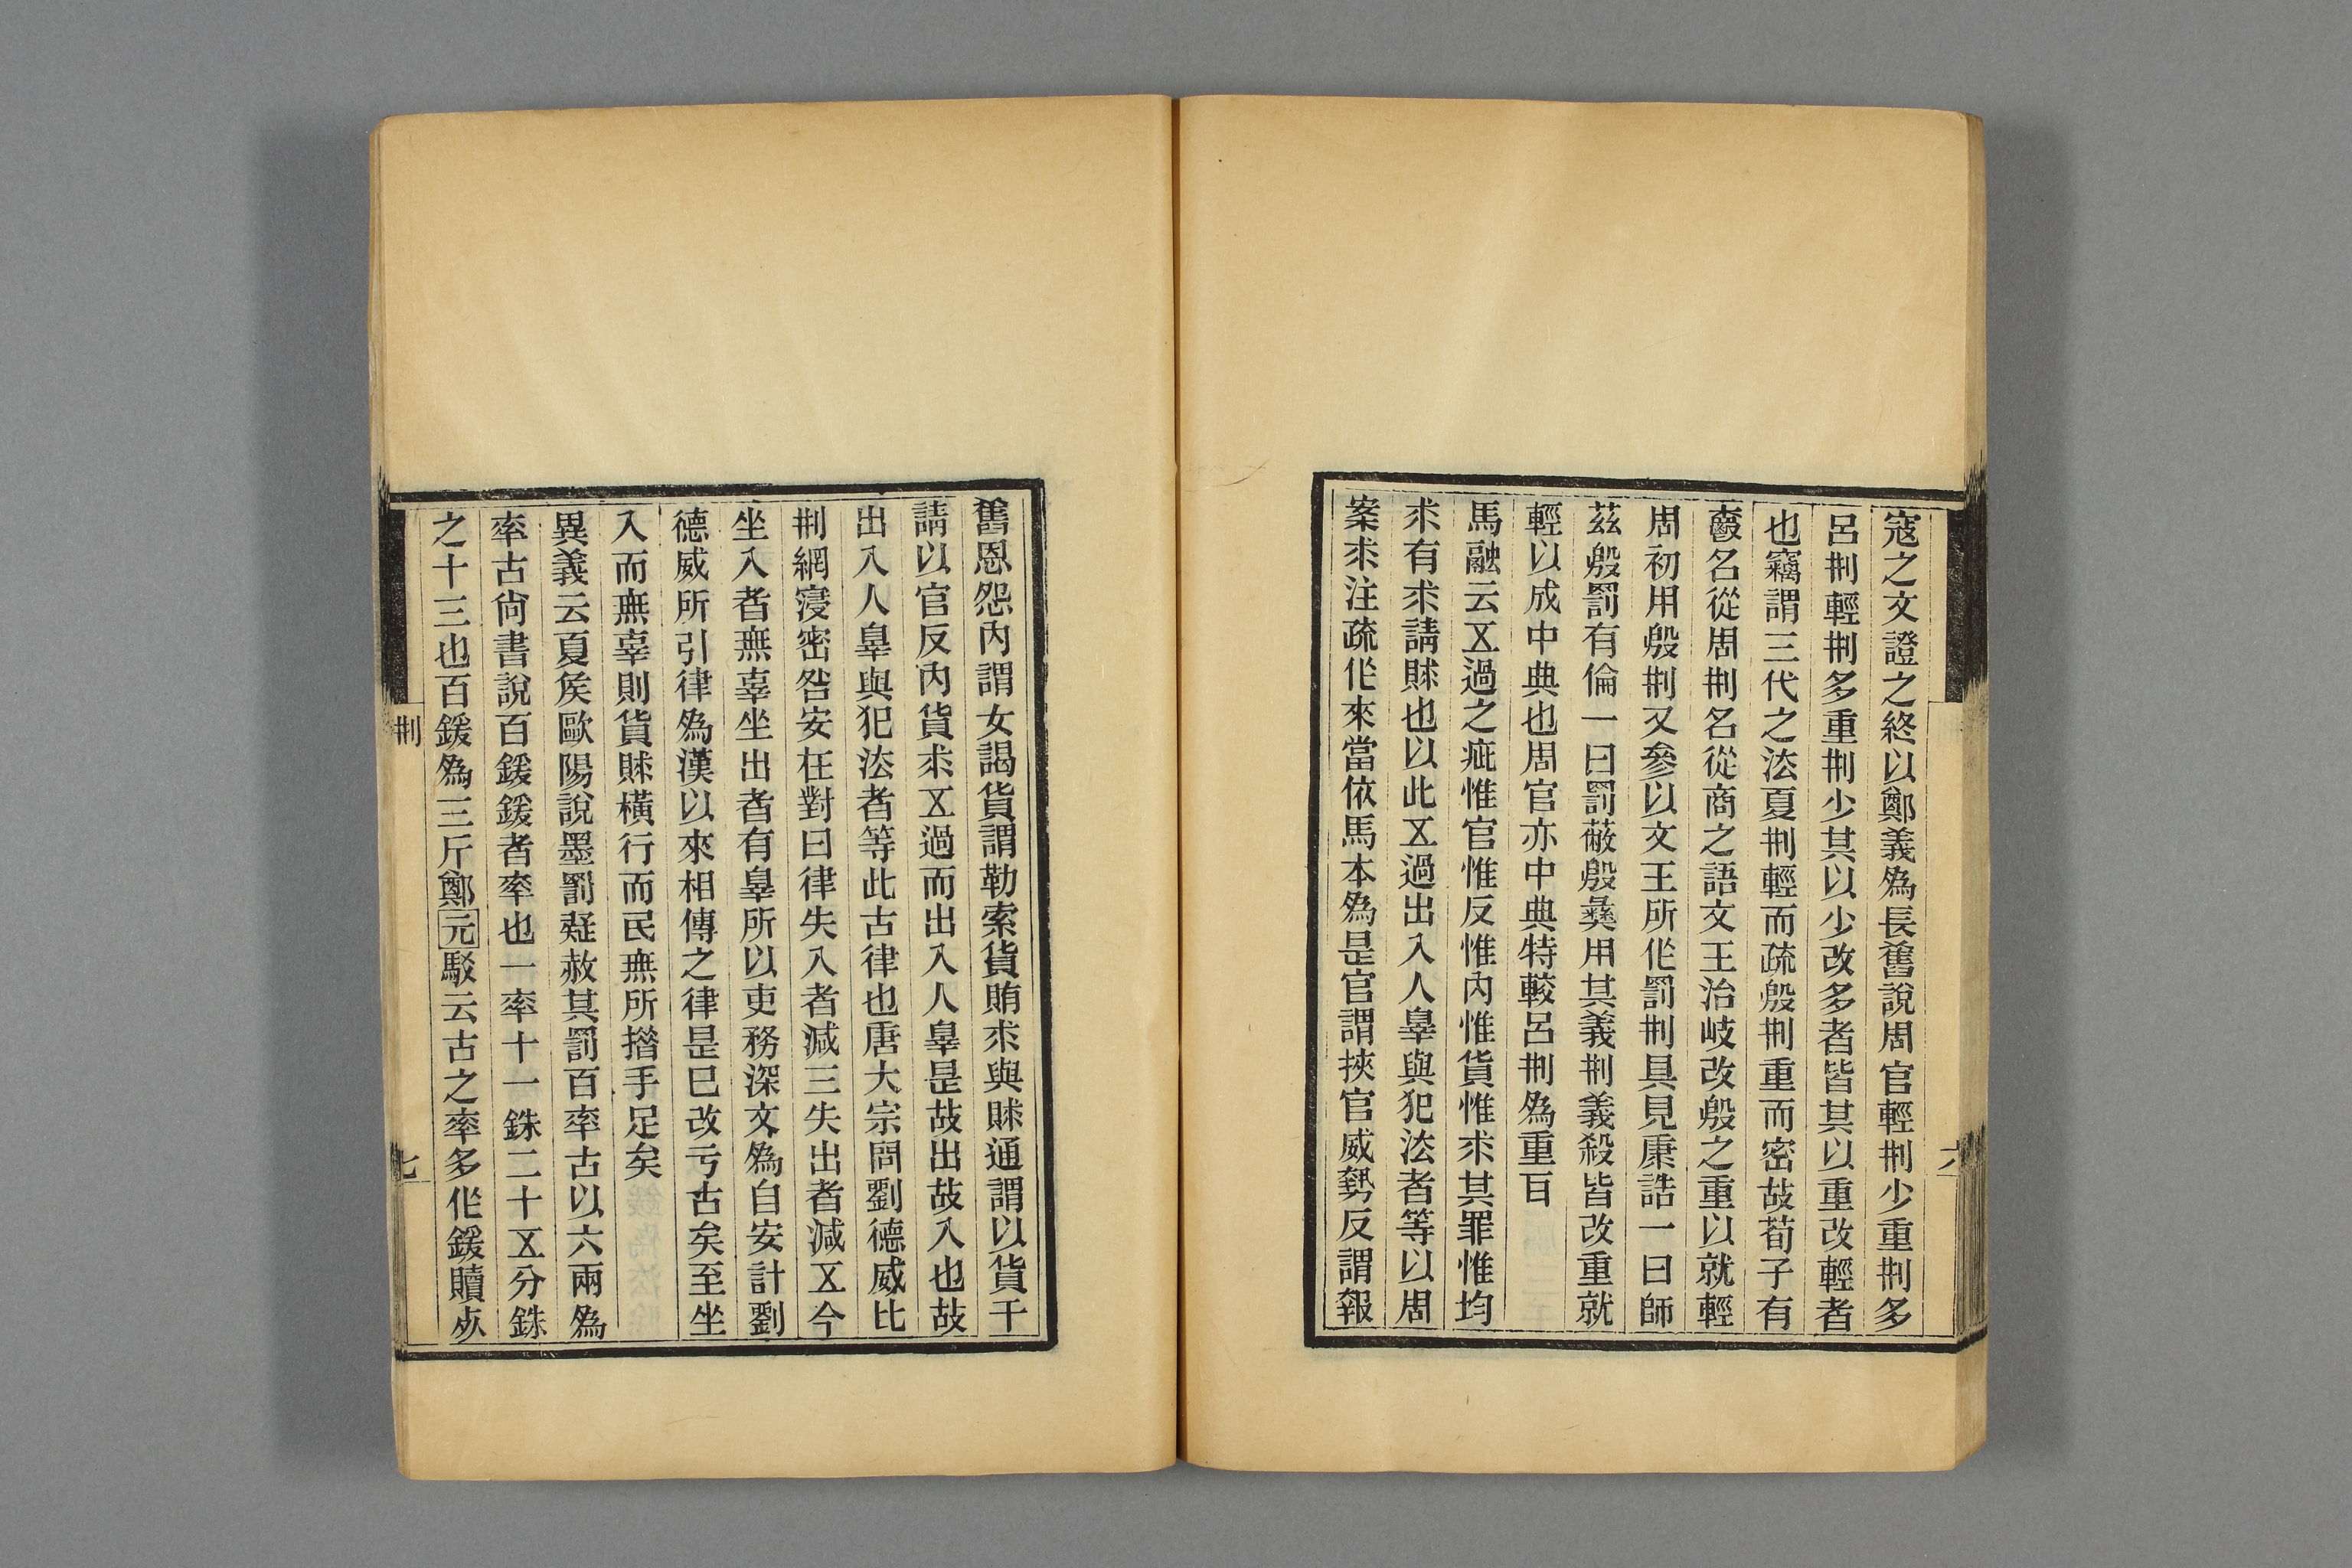 寇之文證之終以鄭義爲長舊說周官輕㓝少重㓝多
呂㓝輕㓝多重㓝少其以少改多者皆其以重改輕者
也竊謂三代之法夏㓝輕而疏殷㓝重而密故荀子有
� 名從周㓝名從商之語文王治岐改殷之重以就輕
周初用殷㓝又參以文王所作罰㓝具見康誥一曰師
茲殷罰有倫一曰罰蔽殷彝用其義㓝義殺皆改重就
輕以成中典也周官亦中典特較呂㓝爲重百
馬融云㐅過之疵惟官惟反惟內惟貨惟求其罪惟均
求有求請賕也以此㐅過出入人辠與犯法者等以周
案求注疏作來當依馬本爲是官謂挾官威埶反謂報
六
舊恩怨內謂女謁貨謂勒索貨賄求與賕通謂以貨干
請以官反內貨求㐅過而出入人辠是故出故入也故
出入人辠與犯法者等此古律也唐大宗問劉德威比
㓝網寖密咎安在對曰律失入者減三失出者減㐅今
坐入者無辜坐出者有辠所以吏務深文爲自安計劉
德威所引律爲漢以來相傳之律是巳改亏古矣至坐
入而無辜則貨賕橫行而民無所措手足矣
異義云夏矦歐陽說墨罰疑赦其罰百率古以六兩爲
率古尙書說百鍰鍰者率也一率十一銖二十㐅分銖
之十三也百鍰爲三斤鄭元駁云古之率多作鍰贖㱑
㓝
七